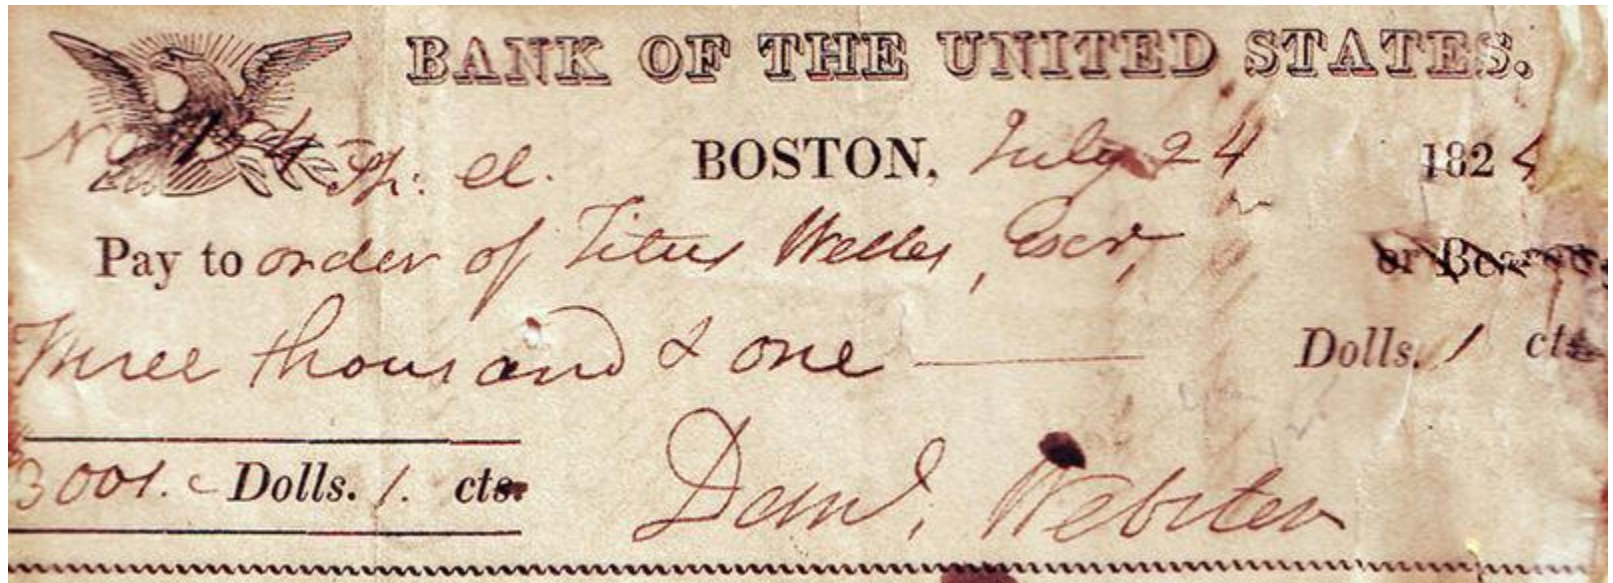 BANK OF THE UNITED STATES.
BOSTON, July 24 1824
Pay to order of Titus Welles, Esqr, or Bearer
Three thousand & one Dolls. 1 cts.
3001. Dolls. 1. cts.
Danl. Webster